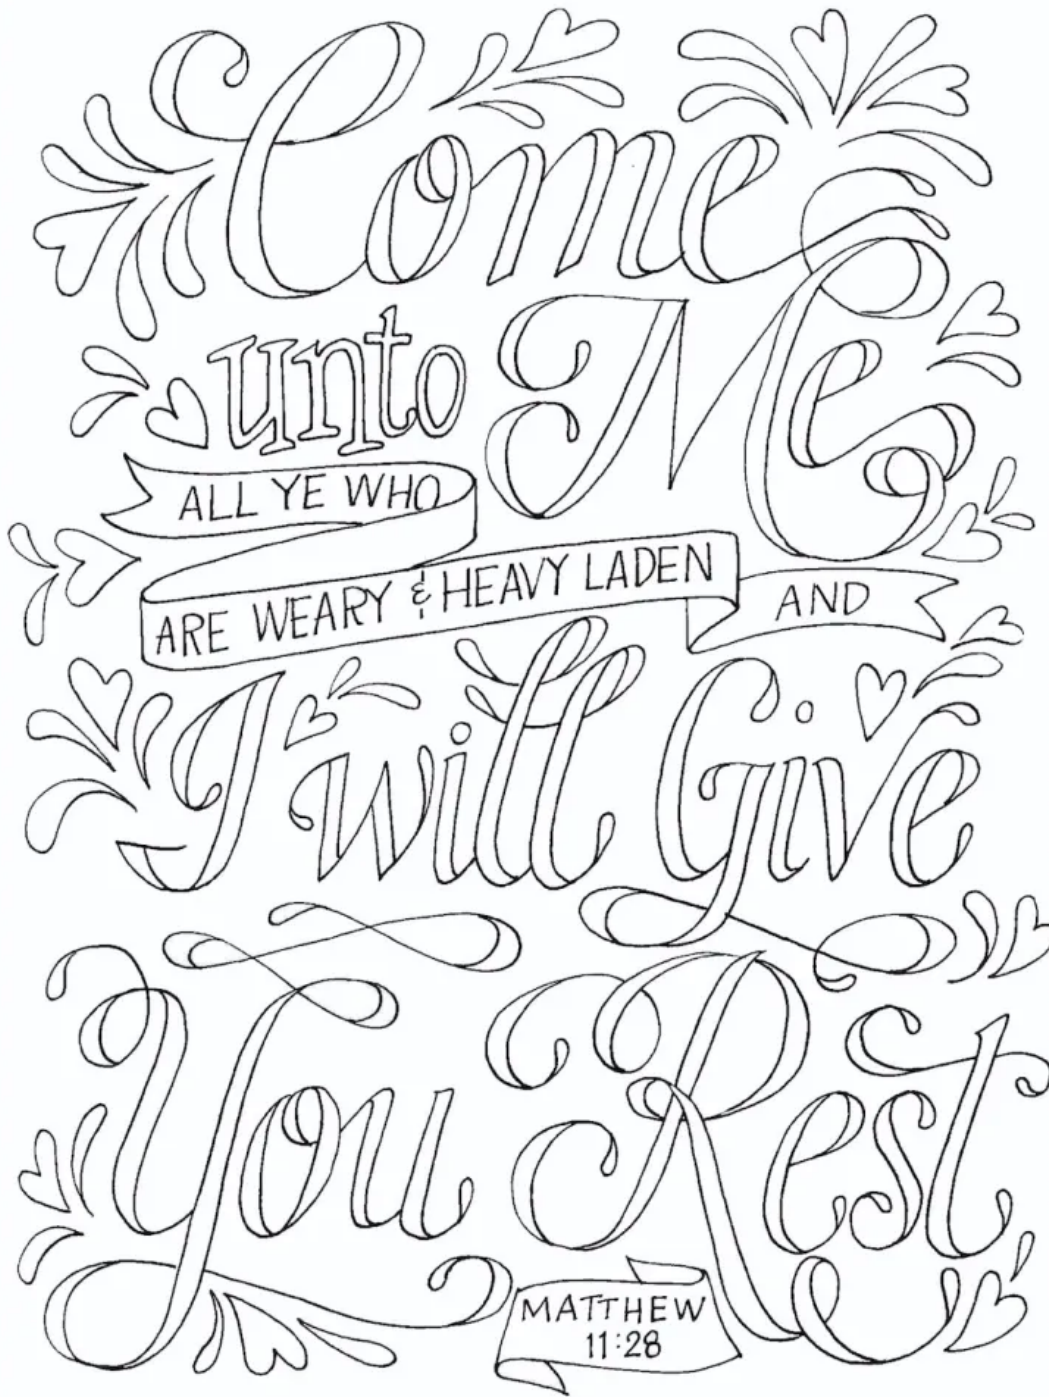 Come
unto Me
ALL YE WHO
ARE WEARY & HEAVY LADEN AND
I will Give
You Rest
MATTHEW
11:28